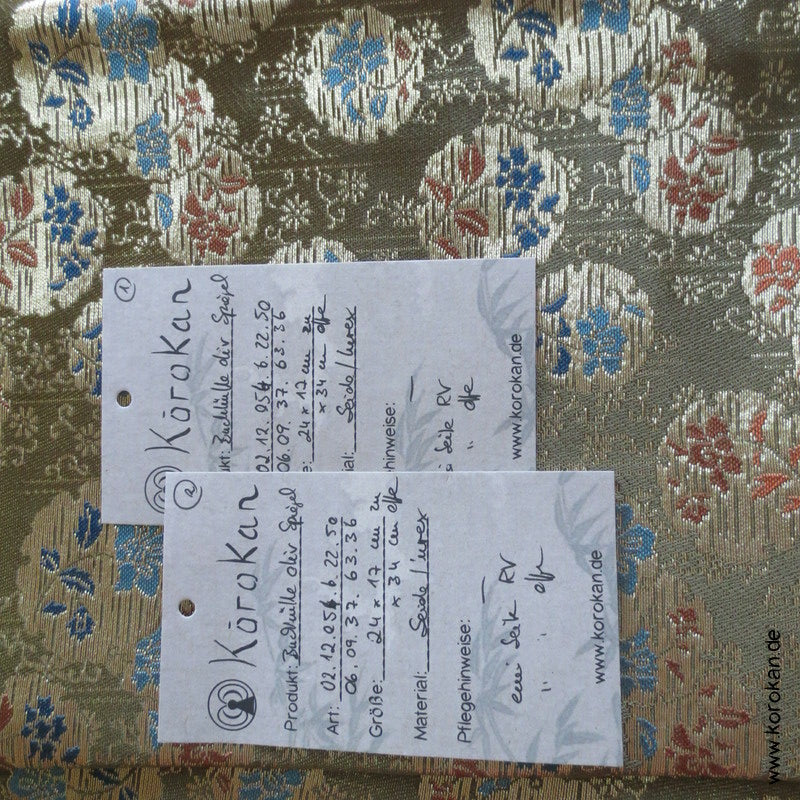 ①
Kōrokan
kt: Buchhülle oliv Spiegel
02.12.054.6.22.50
06.09.37.63.36
e: 24 x 17 cm zu
x 34 cm offe
ial: Seide/Lurex
hinweise: —
i Seite RV
" offe
www.korokan.de
②
Kōrokan
Produkt: Buchhülle oliv Spiegel
Art: 02.12.054.6.22.50
06.09.37.63.36
Größe: 24 x 17 cm zu
x 34 cm offe
Material: Seide/Lurex
Pflegehinweise: —
eine Seite RV
" " offe
www.korokan.de
www.korokan.de